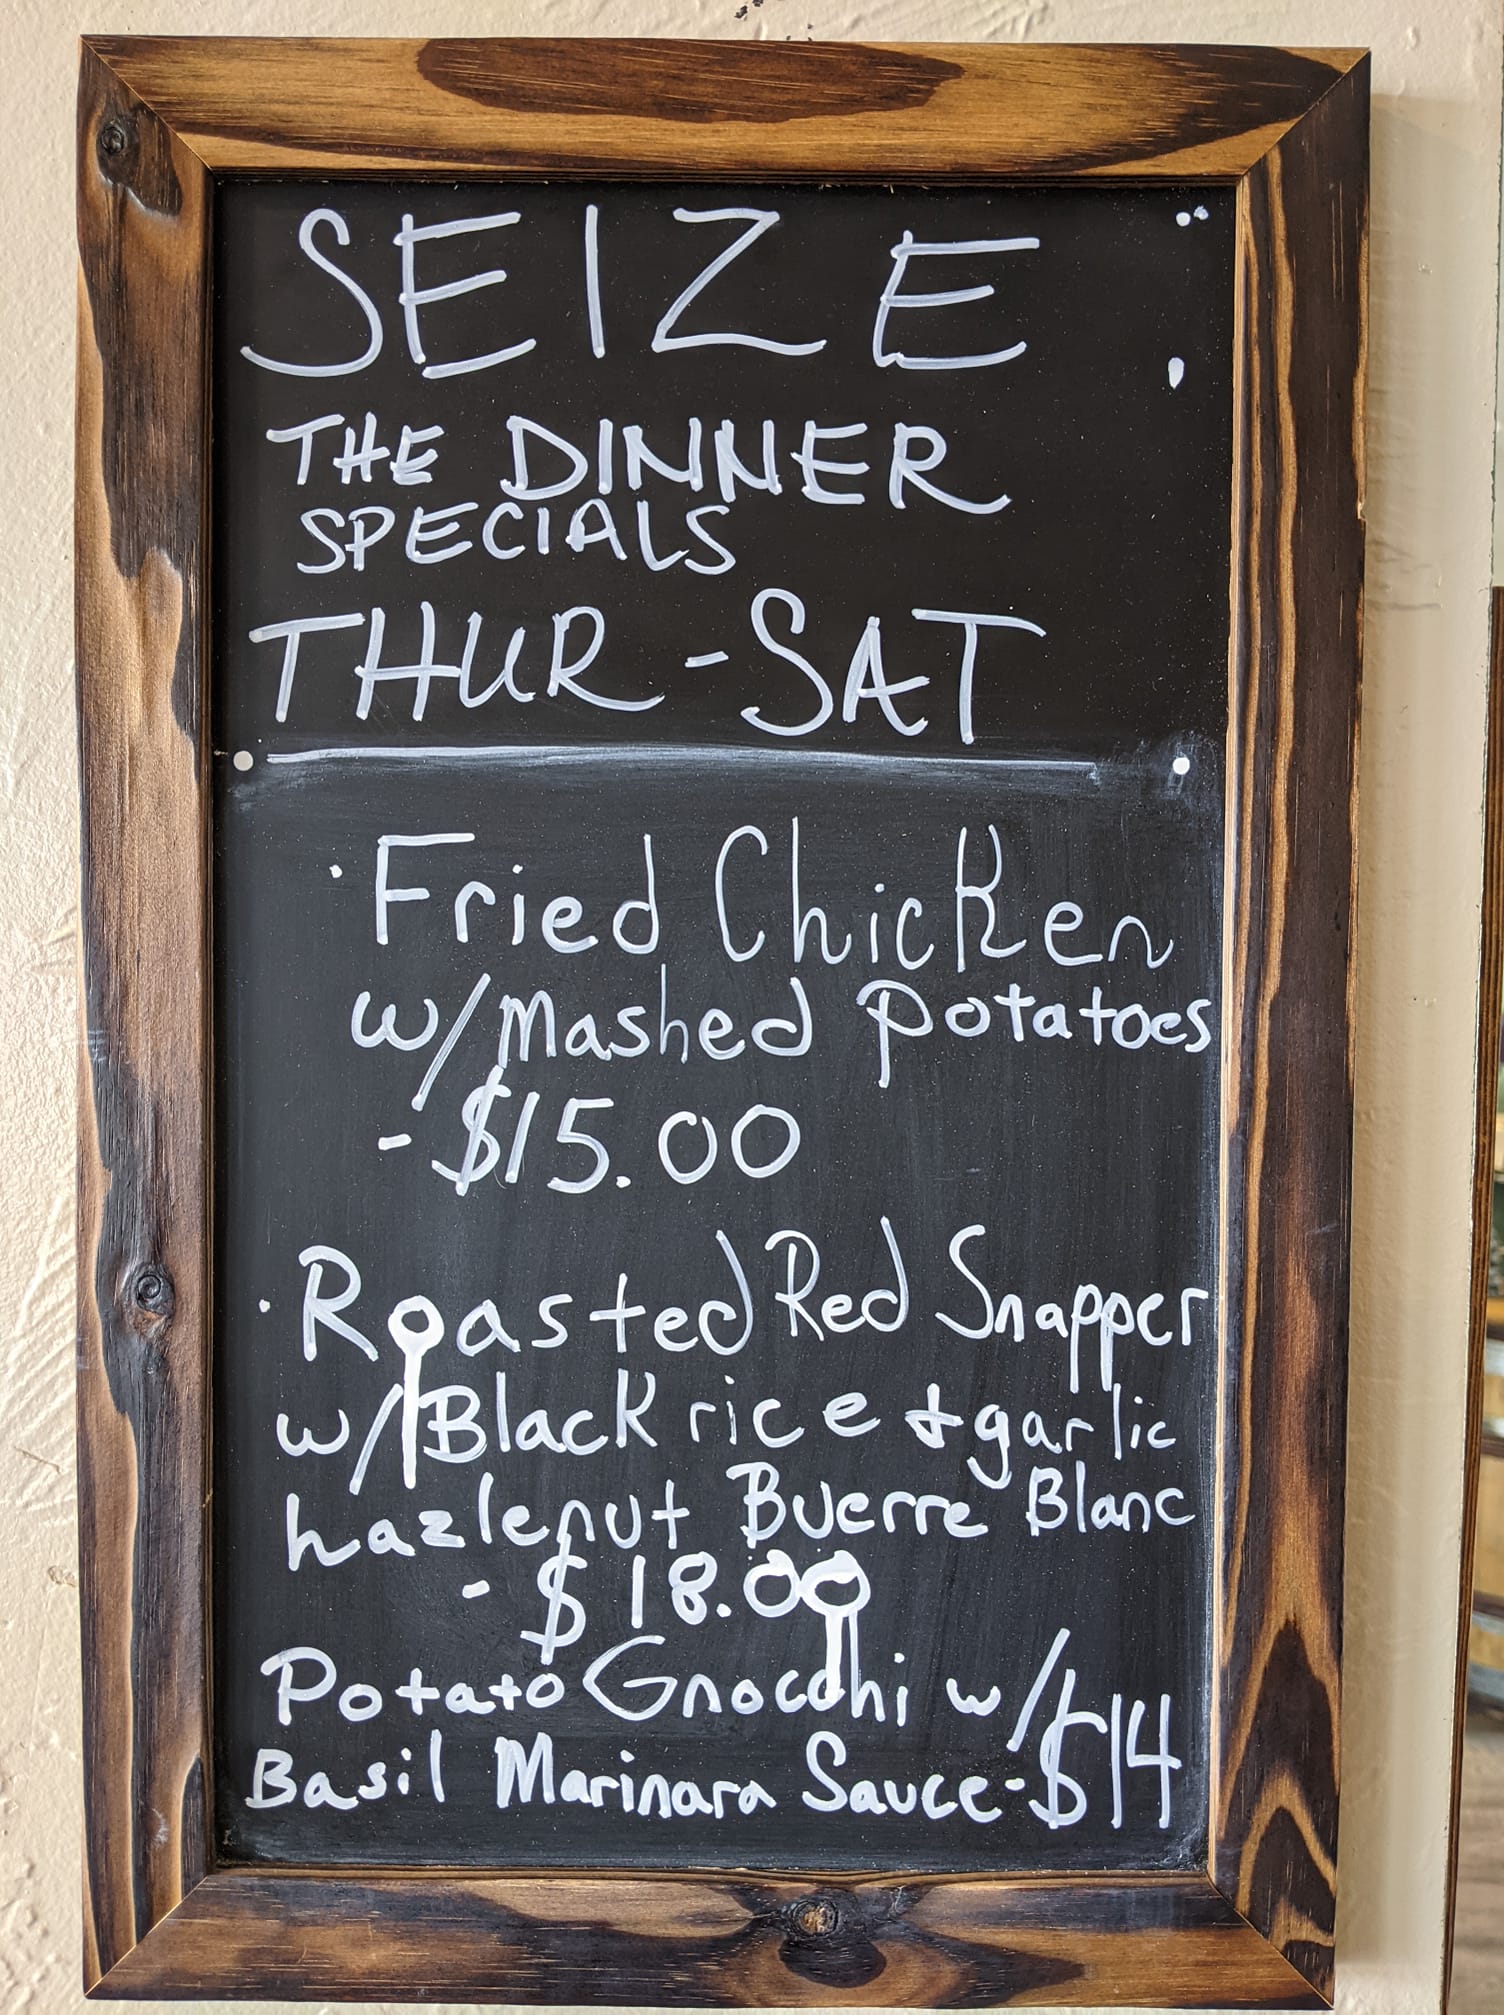 SEIZE
THE DINNER
SPECIALS
THUR - SAT
· Fried Chicken
w/ mashed potatoes
- $15.00
· Roasted Red Snapper
w/ Black rice + garlic
hazlenut Buerre Blanc
- $18.00
Potato Gnocchi w/
Basil Marinara Sauce - $14